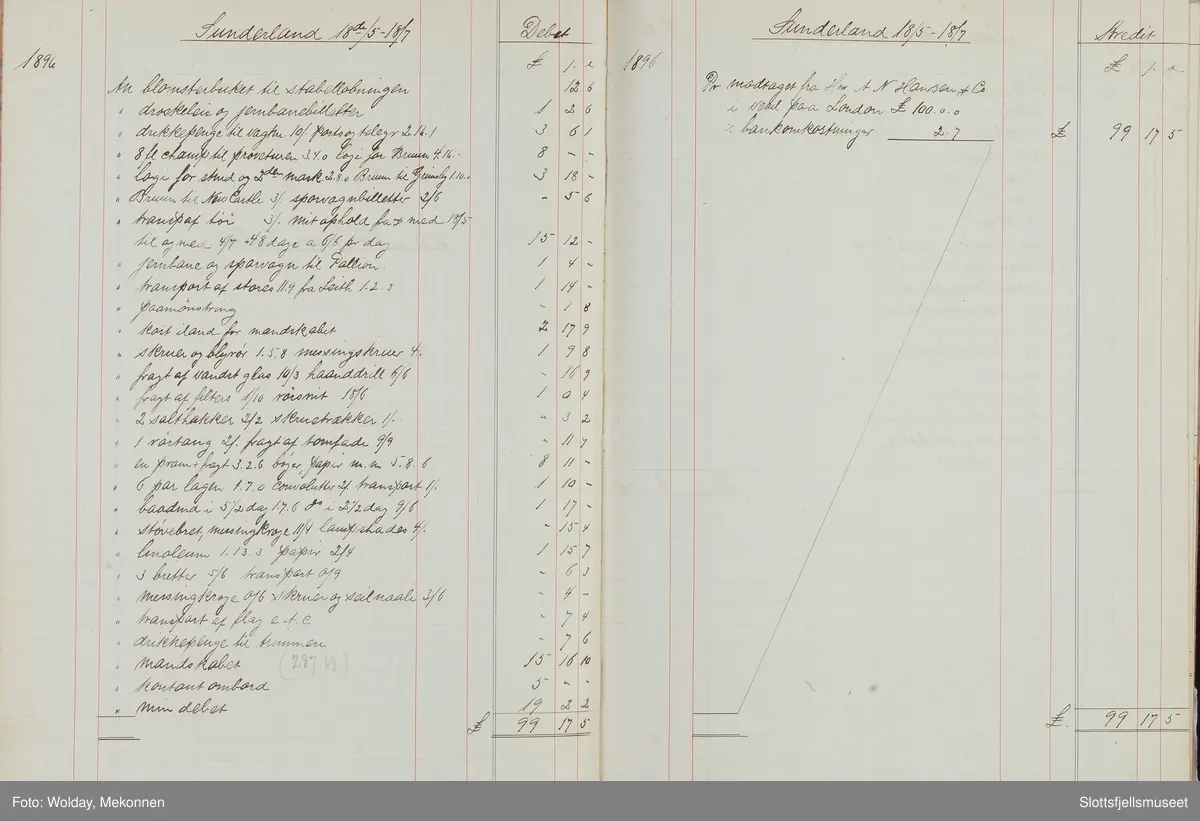 Sunderland 18de/5 - 18/7 Debet
1896 £ s. d
An blomsterbuket til stabelløbningen 12 6
" droskeleie og jernbanebilletter 1 2 6
" drikkepenge til vagtm. 10/ porto og telegr 2.16.1 3 6 1
" 8 fl champ til prøveturen 3.4.0 logi for Bruun 4.16.- 8 - -
" logi for stud og 2den mask. 2.8.0 Bruun til Grimsby 1.10.0 3 18 -
" Bruun til New Castle 3/. sporvognbilletter 2/6 - 5 6
" transp af töi 3/. mit ophold fra & med 18/5
til og med 4/7 48 dage a 6/6 pr dag 15 12 -
" jernbane og sporvogn til Pallion. 1 4 -
" transport af stores 11.9 fra Leith 1.2.3 1 14 -
" paamönstring - 1 8
" kost iland for mandskabet 2 17 9
" skruer og blyrör 1.5.8 messingskruer 4/. 1 9 8
" fragt af vandst glas 10/3 haanddrill 6/6 - 16 9
" fragt af filters 1/10 rörsnit 18/6 1 0 4
" 2 salthakker 2/2 skruetrækker 1/. " 3 2
" 1 rörtang 2/. fragt af tomfade 9/9 " 11 9
" en pram + fragt 3.2.6 bøjer, papir m.m 5.8.6 8 11 -
" 6 par lagen 1.7.0 convolutter 2/. transport 1/. 1 10 -
" baadmd i 5 1/2 dag 1.7.6 do i 2 1/2 dag 9/6 1 17 -
" støvebret, messingkroge 11/4 lampshades 4/. " 15 4
" linoleum 1.13.3 papir 2/4 1 15 7
" 3 bretter 5/6 transport 0/9 " 6 3
" messingkroge 0/6 skruer og seilnaale 3/6 " 4 -
" transport af flag e.t.c " 7 4
" drikkepenge til trimmere " 7 6
" mandskabet (287.49) 15 16 10
" kontant ombord 5 " -
" min debet 19 2 2
£ 99 17 5
Sunderland 18/5 - 18/7 Kredit
1896 £ s. d
Pr modtaget fra Hrr. A N Hansen & Co
i vexel paa London £ 100.0.0
% bankomkostninger 2.7 £ 99 17 5
£. 99 17 5
Foto: Wolday, Mekonnen
Slottsfjellsmuseet